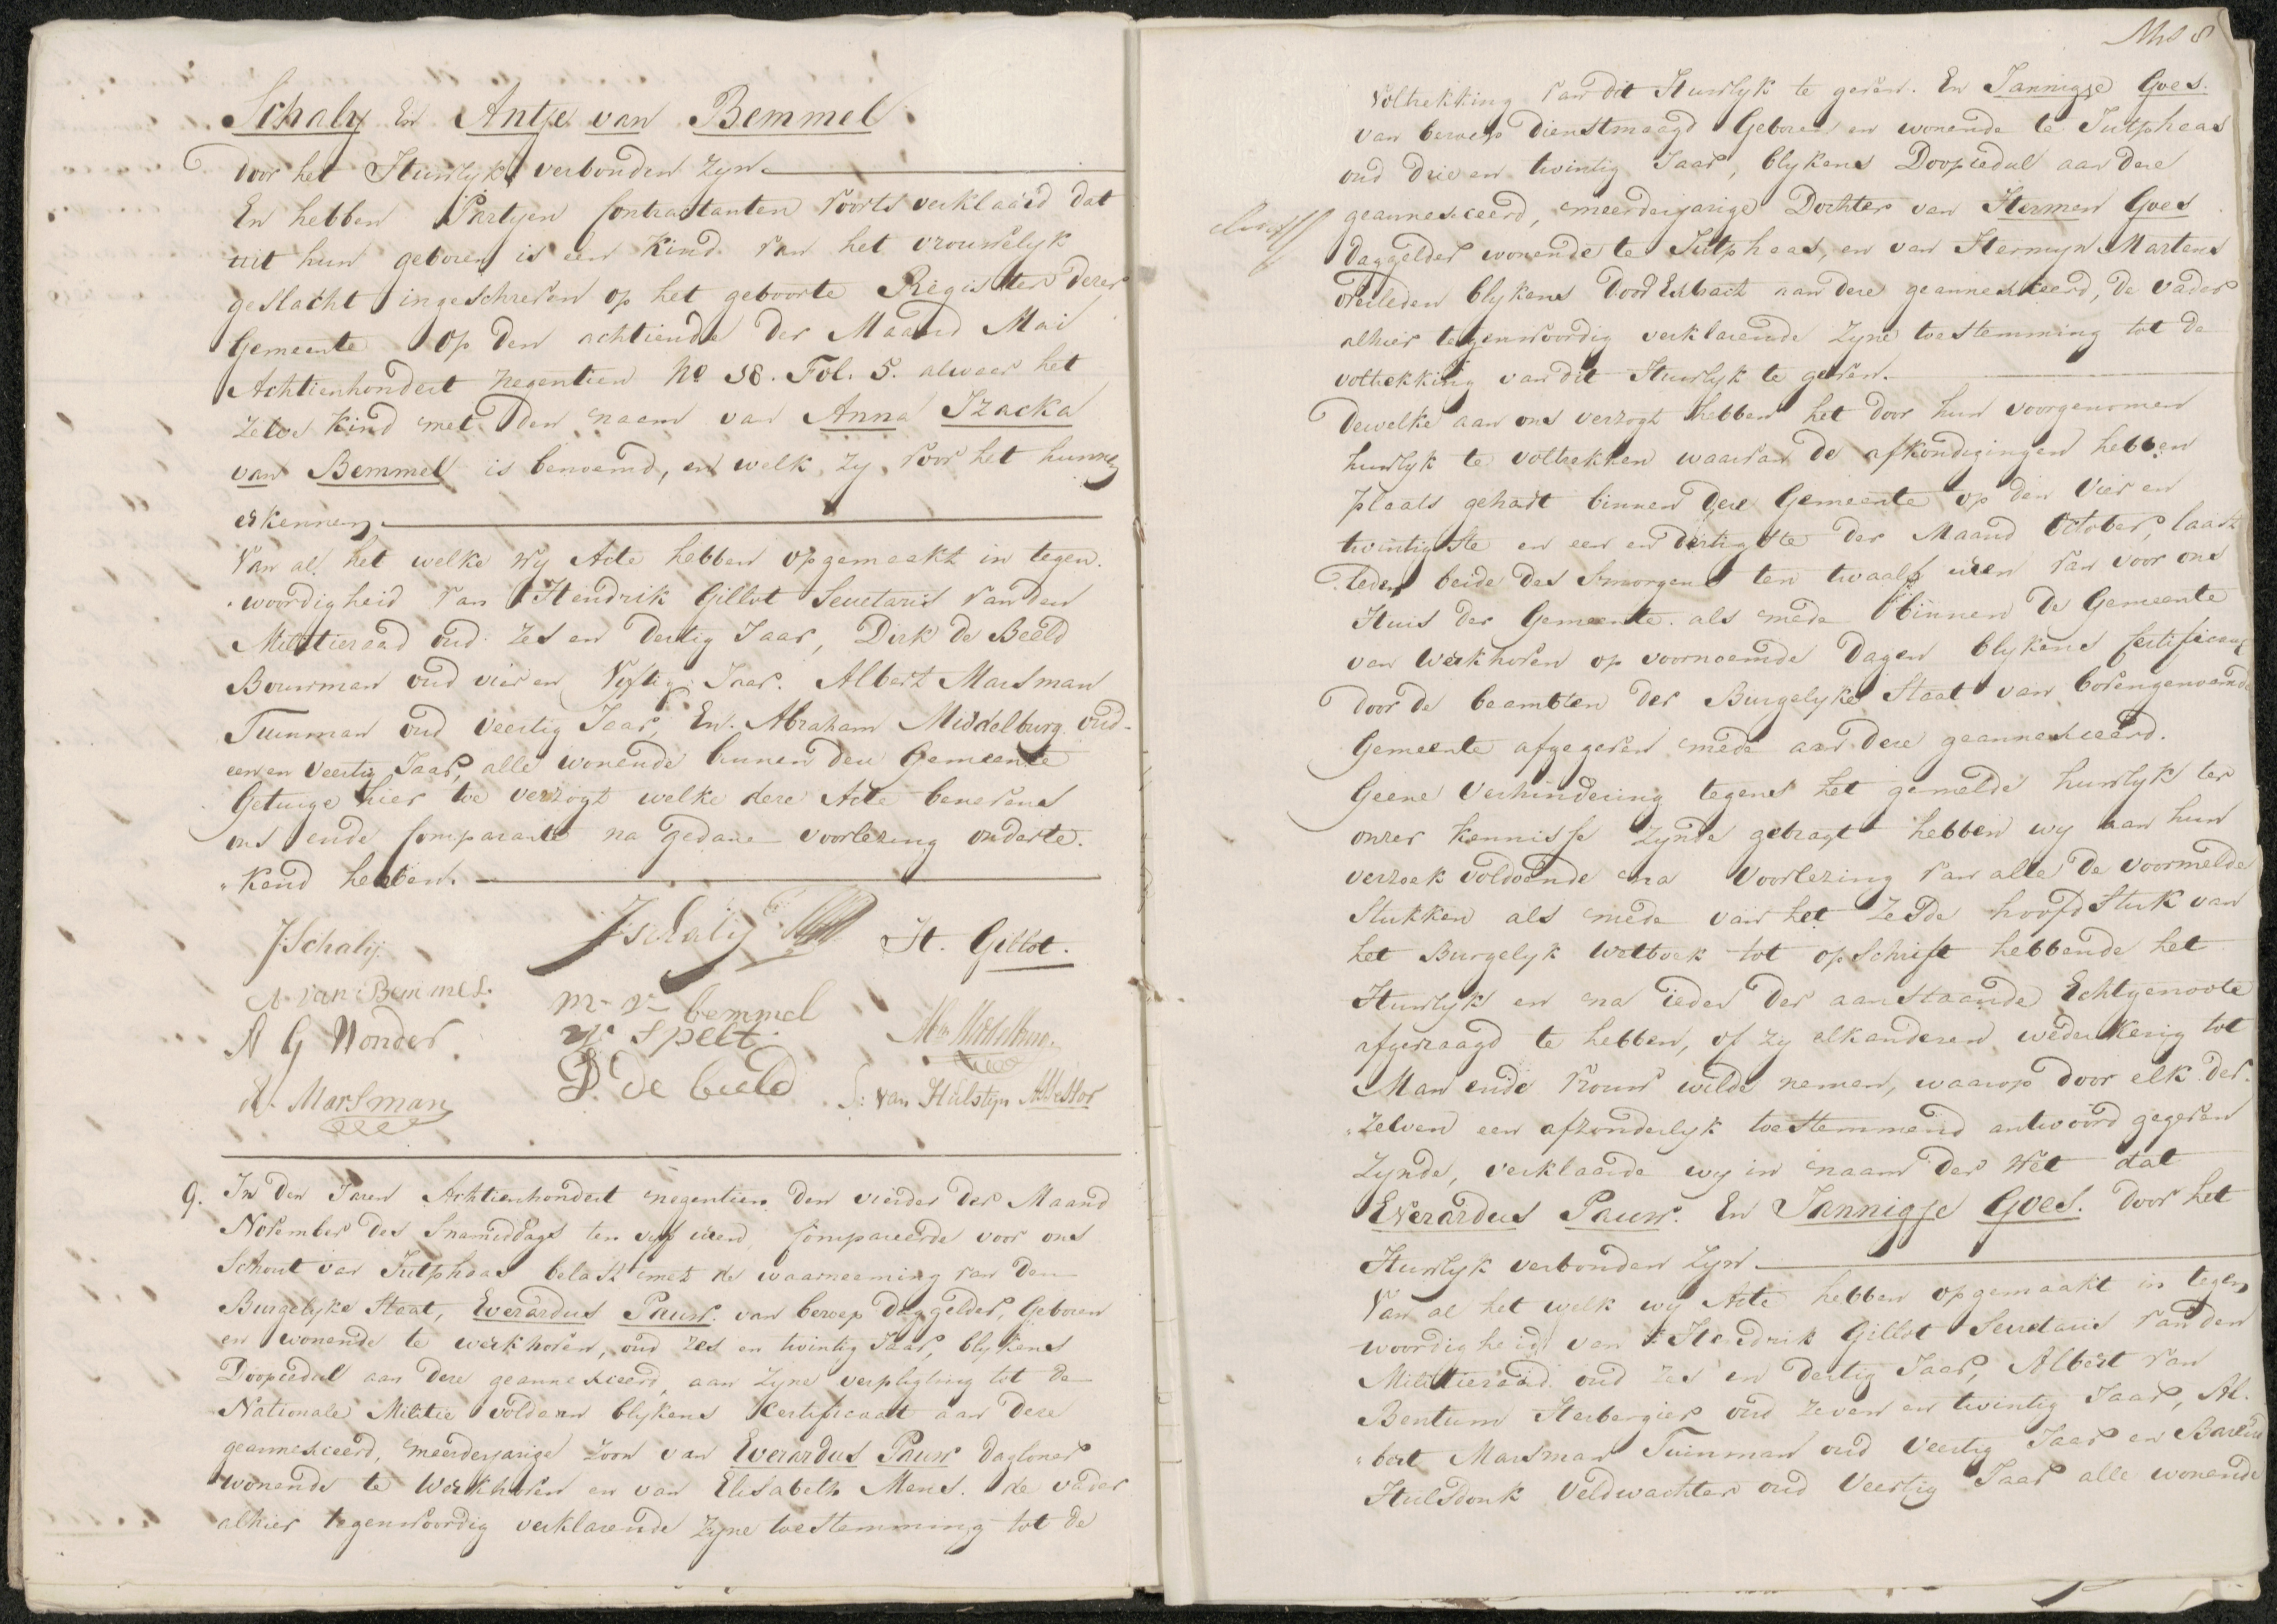 Schaly En Antje van Bemmel
door het Huwlyk verbonden zyn.
En hebben Partyen Contractanten voorts verklaard dat
uit hun geboren is een Kind van het vrouwelyk
geslacht ingeschreven op het geboorte Register dezer
Gemeente op den achtiende der Maand Mai
Achtienhondert negentien No 38. Fol. 5. alwaar het
zelve Kind met den naam van Anna Izacka
van Bemmel is benoemd, en welk zy voor het hunne
erkennen.
Van al het welke wy Acte hebben opgemaakt in tegen-
woordigheid van Hendrik Gillot Secretaris van den
Militieraad oud zes en dertig Jaar, Dirk de Beeld
Bouwman oud vier en Vyftig Jaar. Albert Marsman
Tuinman oud veertig Jaar, En Abraham Middelburg oud
een en veertig Jaar, alle wonende binnen deze Gemeente
Getuige hier toe verzogt welke deze Acte benevens
ons ende Comparante na gedane voorlezing onderte-
"kend hebben.
J: Schaly
J Schalij
H. Gillot.
A. van Bemmel.
m. v. bemmel
A G Wonder.
spelt.
D. De beeld
A. Marsman
S: van Hulstyn Assessor
9. In den Jaren Achtienhondert negentien den vierder der Maand
November des Snamiddags ten vyf uren, Compareerde voor ons
Schout van Jutphaas belast met de waarneeming van den
Burgelyke Staat, Everardus Pauw. van beroep daggelder, Geboren
en wonende te werkhoven, oud zes en twintig Jaar, blykens
Doopcedul aan deze geannexceerd, aan zyne verpligting tot de
Nationale Militie voldaan blykens Certificaat aan deze
geannexceerd, meerderjarige zoon van Everardus Pauw Dagloner
wonende te Werkhoven en van Elisabeth Mens. de vader
alhier tegenwoordig verklarende zyne toestemming tot de
voltrekking van dit Huwlyk te geven. En Jannigje Goes.
van beroep Dienstmaagd Geboren en wonende te Jutphaas
oud drie en twintig Jaar, blykens Doopcedul aan deze
geannexceerd, meerderjarige Dochter van Hermen Goes
daggelder wonende te Jutphaas, en van Hermeyn Martens
overleden blykens Dood Extract aan deze geannexceerd, de vader
alhier tegenwoordig verklarende zyne toestemming tot de
voltrekking van dit Huwlyk te geven.
Dewelke aan ons verzogt hebben het door hun voorgenomen
huwlyk te voltrekken waarvan de afkondigingen hebben
plaats gehadt binnen deze Gemeente op den vier en
twintigste en een en dertigste der Maand October, laast
"leden beide des Smorgens ten twaalf uren van voor ons
Huis der Gemeente. als mede binnen de Gemeente
van Werkhoven op voornoemde dagen blykens Certificaat
door de beambten der Burgelyke Staat van bovengenoemde
Gemeente afgegeven mede aan deze geannexceerd.
Geene Verhindering tegens het gemelde huwlyk ter
onzer kennisse zynde gebragt hebben wy aan hun
verzoek voldoende na Voorlezing van alle de voormelde
Stukken als mede van het Zesde hoofd Stuk van
het Burgelyk Wetboek tot opschrift hebbende het
Huwlyk en na ieder der aanstaande Echtgenoote
afgevraagd te hebben, of zy elkanderen wederkerig tot
Man ende Vrouw wilde nemen, waarop door elk der-
"zelven een afzonderlyk toestemmend antwoord gegeven
zynde, verklaarde wy in naam der Wet dat
Everardus Pauw. En Jannigje Goes. door het
Huwlyk verbonden zyn.
Van al het welk wy Acte hebben opgemaakt in tegen
woordigheid van Hendrik Gillot Secretaris van den
Militieraad oud zes en dertig Jaar, Albert van
Bentum Herbergier oud zeven en twintig Jaar, Al-
"bert Marsman Tuinman oud Veertig Jaar en
Hulsdonk Veldwachter oud Veertig Jaar alle wonende